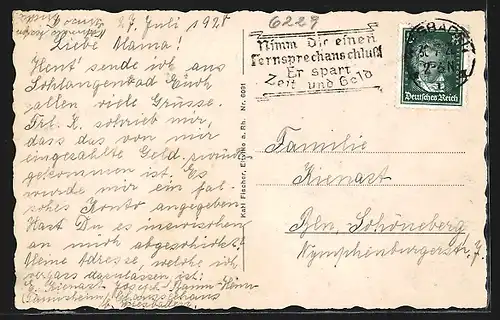 27. Juli 1928
Liebe Mama!
Heut' sende ich aus
Schlangenbad Euch
allen viele Grüsse.
Frl. K. schrieb mir,
dass das von mir
eingezahlte Geld zurück
gekommen ist. Es
wurde mir ein fal-
sches Konto angegeben.
Hast Du es inzwischen
an mich abgeschickt?
Meine Adresse, welche ich
vergass dazulassen, ist:
Kienast
Chausseehaus
b. Wiesbaden
Karl Fischer, Eltville a. Rh. Nr. 6691
6229
Nimm Dir einen
Fernsprechanschluß
Er spart
Zeit und Geld
Deutsches Reich
Familie
Kienast
Bln. Schöneberg
Nymphenburgerstr. 7